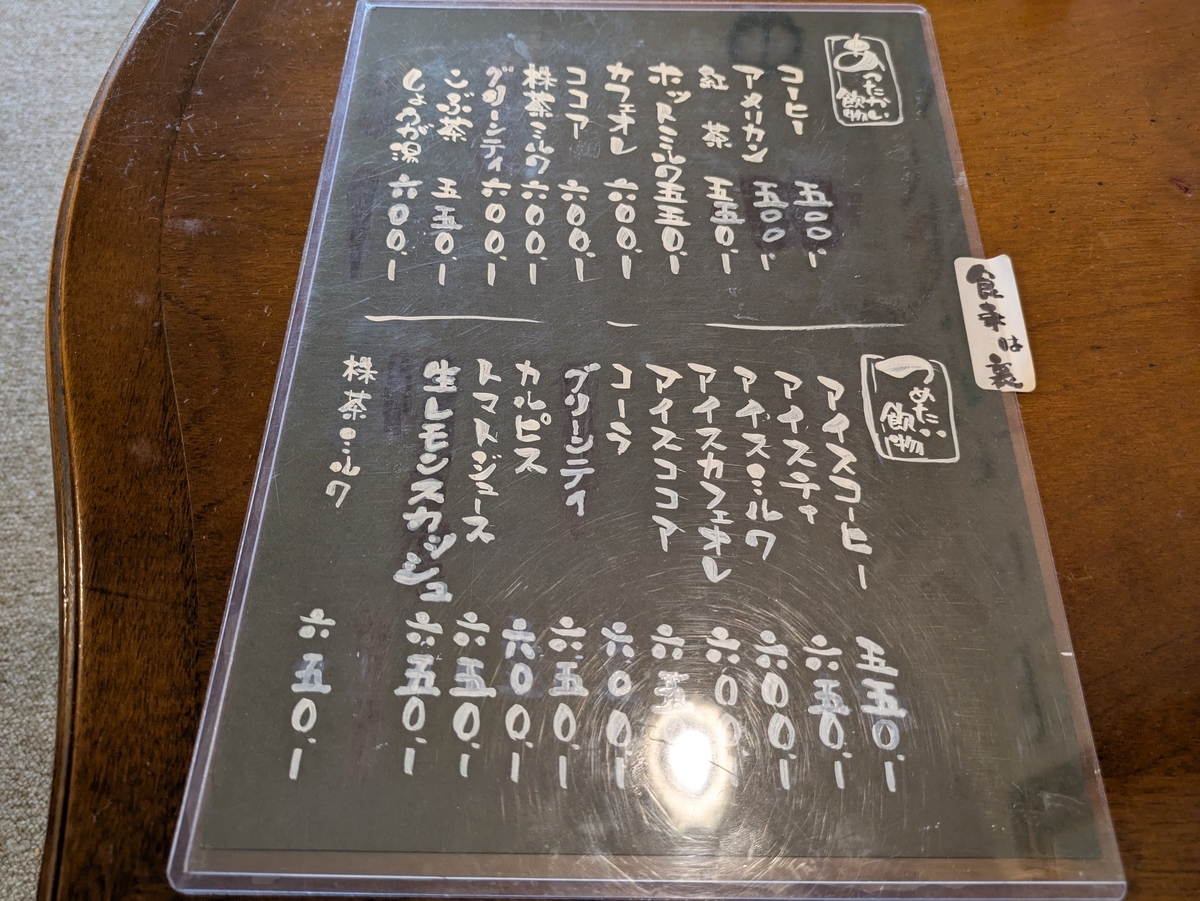 あったかい飲物
コーヒー 五〇〇.-
アメリカン 五〇〇.-
紅茶 五五〇.-
ホットミルク 五五〇.-
カフェオレ 六〇〇.-
ココア 六〇〇.-
抹茶ミルク 六〇〇.-
グリーンティ 六〇〇.-
こぶ茶 五五〇.-
しょうが湯 六〇〇.-
食事は裏
つめたい飲物
アイスコーヒー 五五〇.-
アイスティ 六五〇.-
アイスミルク 六〇〇.-
アイスカフェオレ 六〇〇.-
アイスココア 六五〇.-
コーラ 六〇〇.-
グリーンティ 六五〇.-
カルピス 六〇〇.-
トマトジュース 六五〇.-
生レモンスカッシュ 六五〇.-
抹茶ミルク 六五〇.-